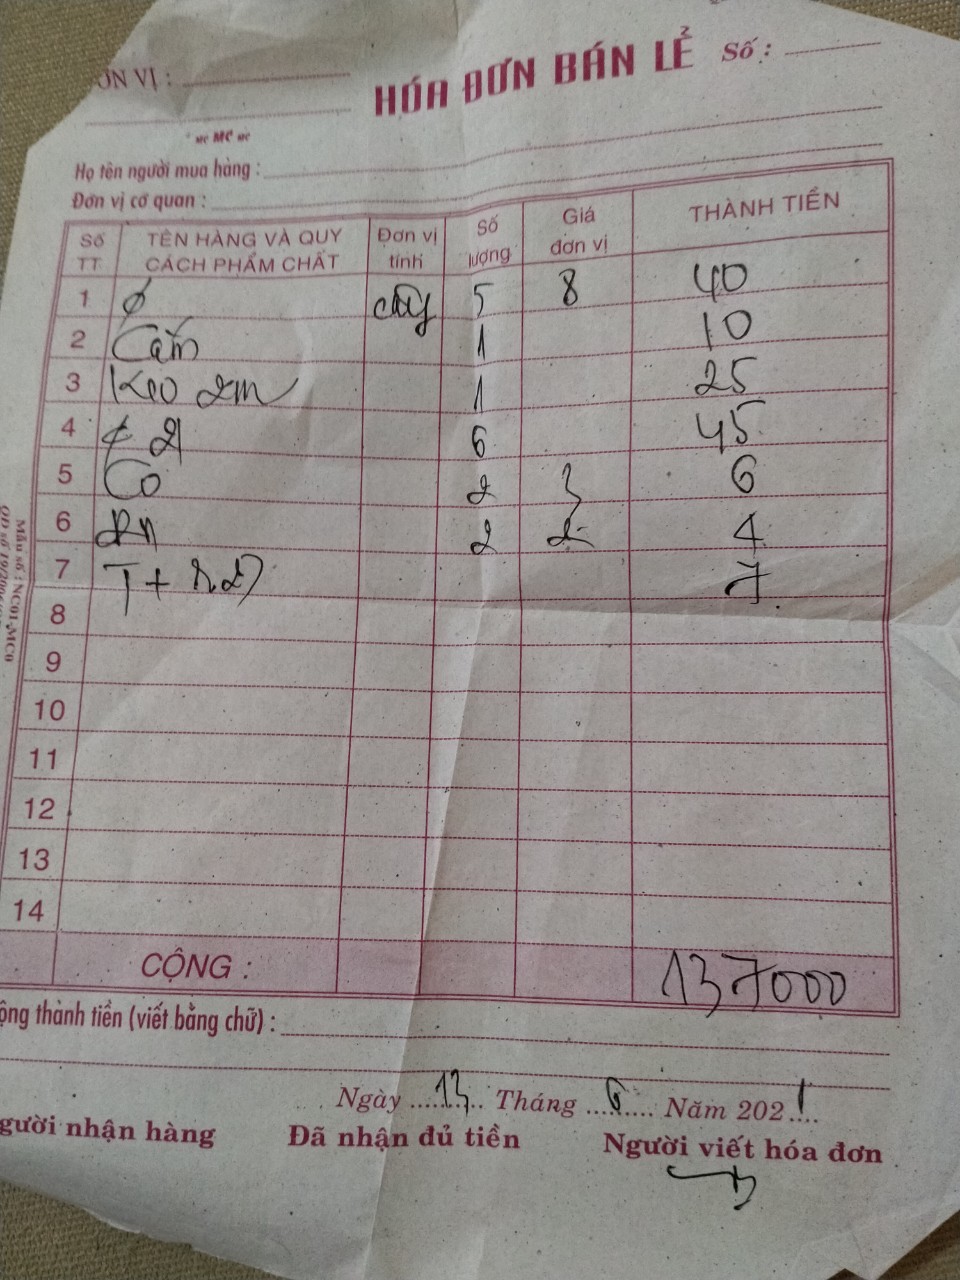 ƠN VỊ :
HÓA ĐƠN BÁN LẺ Số :
MC
Họ tên người mua hàng :
Đơn vị cơ quan :
Số TT TÊN HÀNG VÀ QUY CÁCH PHẨM CHẤT Đơn vị tính Số lượng Giá đơn vị THÀNH TIỀN
1 cây 5 8 40
2 1 10
3 Keo 1 25
4 6 45
5 Co 2 3 6
6 2 2 4
7 7
8
9
10
11
12
13
14
CỘNG : 137000
ộng thành tiền (viết bằng chữ) :
Ngày 13 Tháng 6 Năm 2021
gười nhận hàng Đã nhận đủ tiền Người viết hóa đơn
Mẫu số : NC01-MC8